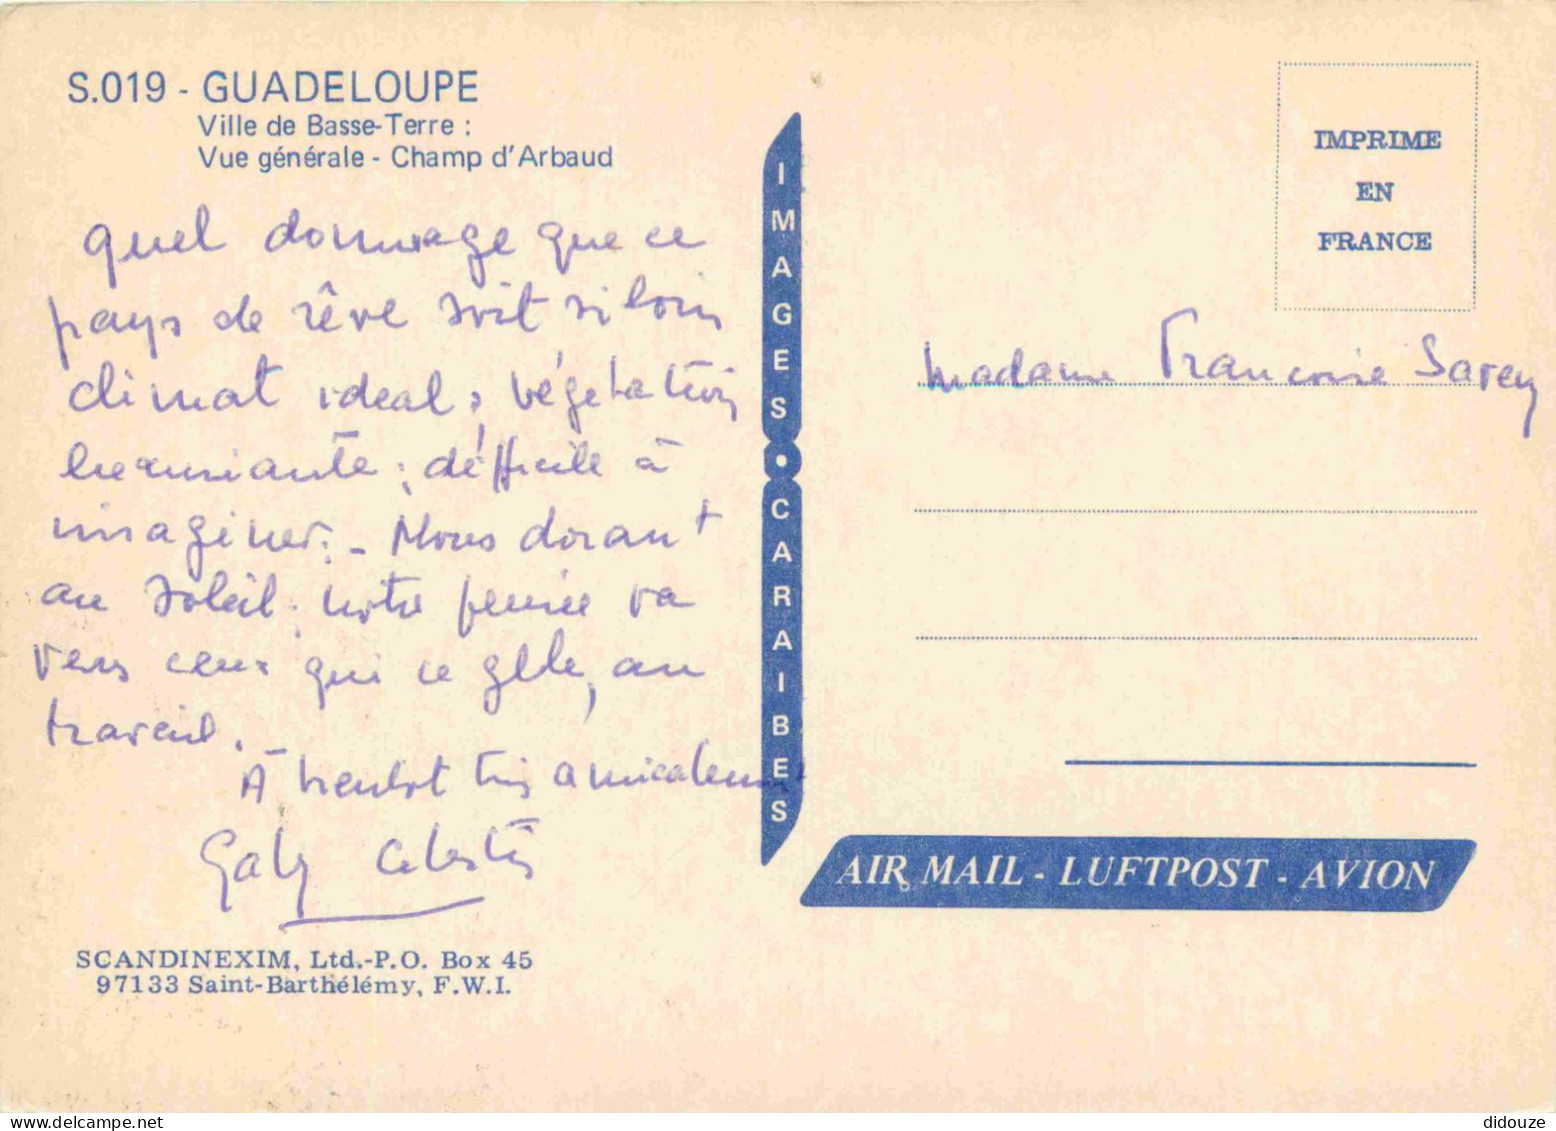 S.019 - GUADELOUPE
Ville de Basse-Terre :
Vue générale - Champ d'Arbaud
quel dommage que ce
pays de rêve soit si loin
climat ideal, végétation
luxuriante, difficile à
imaginer. - Nous dorant
au soleil. notre pensée va
vers ceux qui se gèle, au
travail.
A bientot très amicalement
Gaby Celestin
SCANDINEXIM, Ltd.-P.O. Box 45
97133 Saint-Barthélémy, F.W.I.
IMAGES • CARAIBES
IMPRIME
EN
FRANCE
Madame Francoise
AIR MAIL - LUFTPOST - AVION
didouze